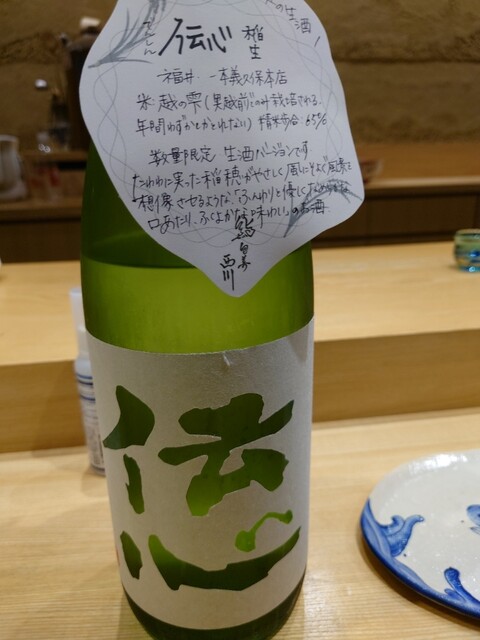 の生酒!
でんしん
伝心 稲生
福井 一本義久保本店
米 越の雫(奥越前でのみ栽培される。
年間わずかしかとれない) 精米歩合:65%
数量限定 生酒バージョンです
たわわに実った稲穂がやさしく風にそよぐ風景を
想像させるような、「ふんわりと優しくなめらかな
口あたり。ふくよかな味わい」のお酒
西川
伝心